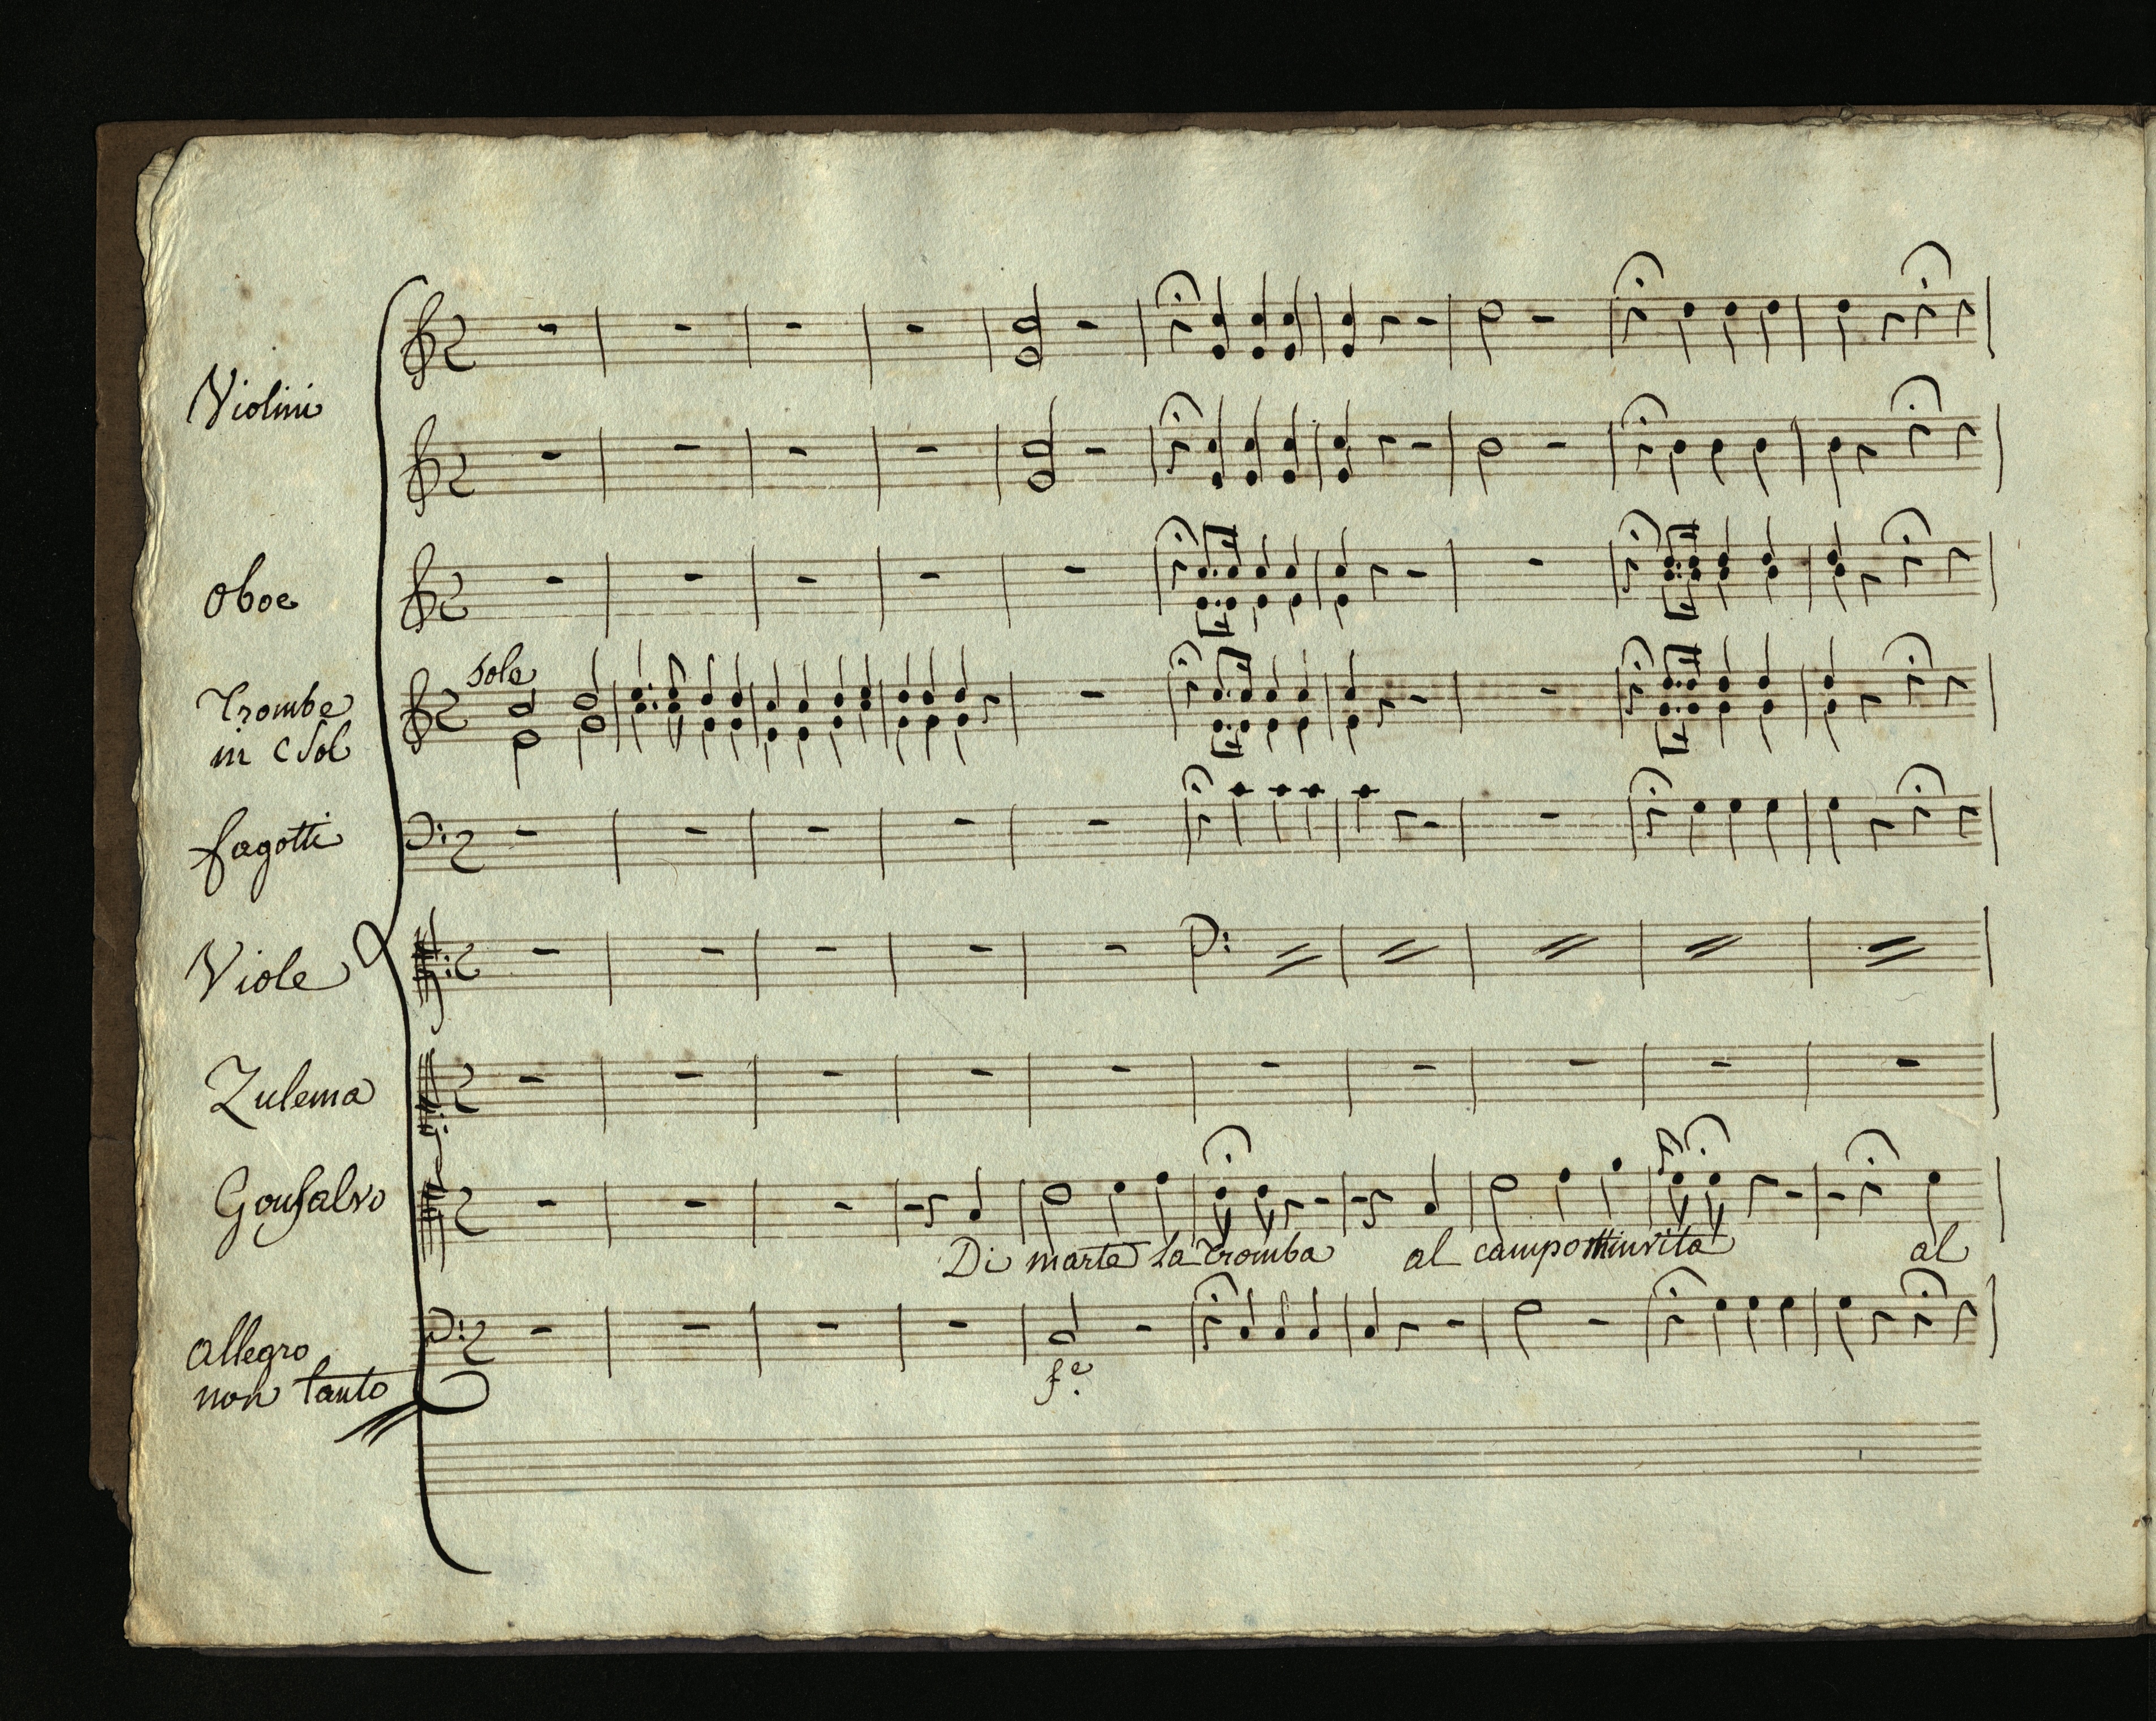 Violini
Oboe
sole
Trombe
in CSol
fagotti
Viole
Zulema
Gonsalvo
Di marte la Tromba al campo m'invita al
allegro
non tanto
fe.